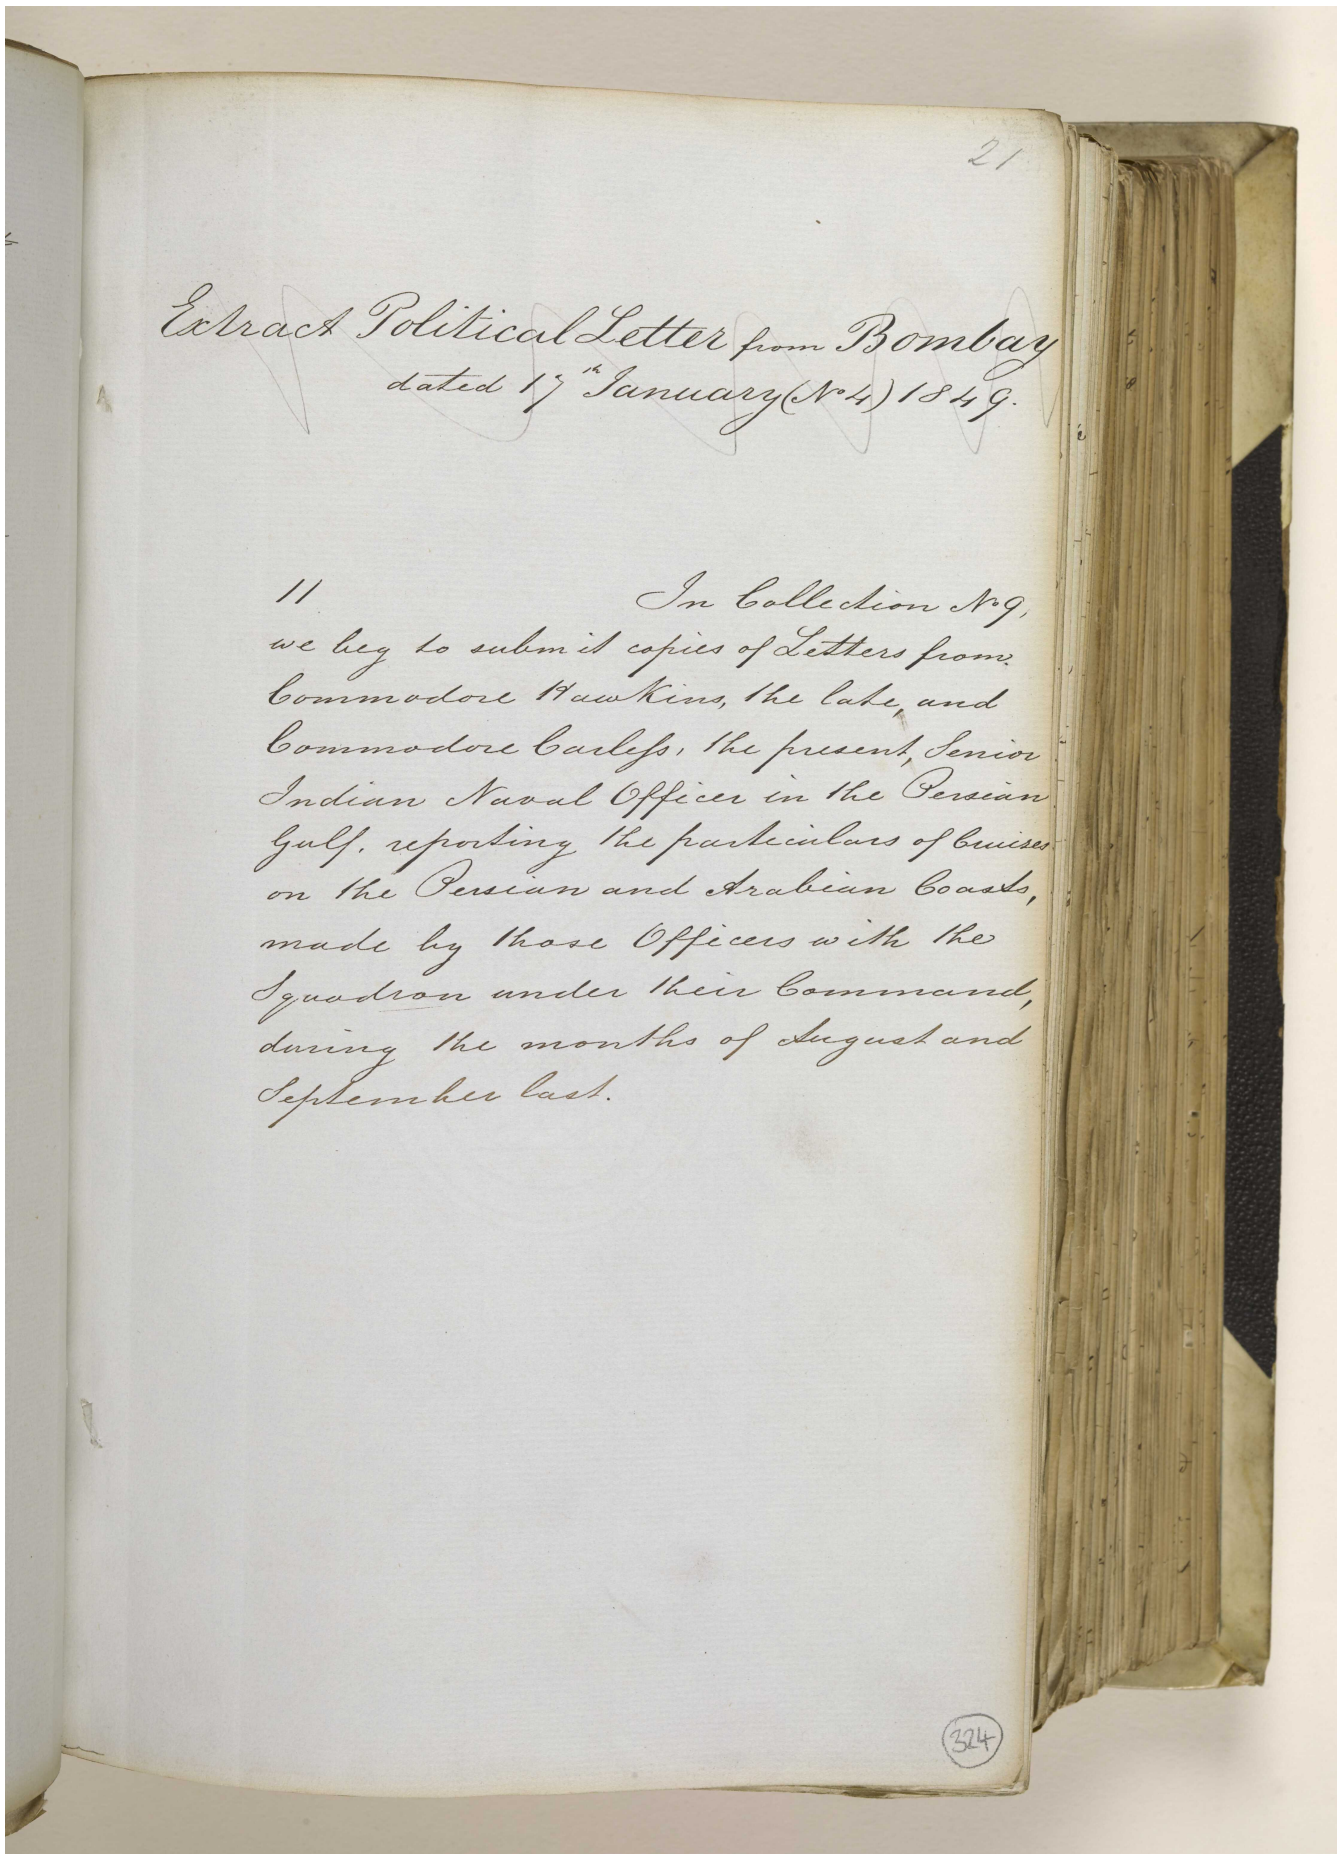 21
Extract Political Letter from Bombay
dated 17th January (No 4) 1849.
11 In Collection No 9,
we beg to submit copies of Letters from
Commodore Hawkins, the late, and
Commodore Carless, the present, Senior
Indian Naval Officer in the Persian
Gulf, reporting the particulars of Cruises
on the Persian and Arabian Coasts,
made by those Officers with the
Squadron under their Command,
during the months of August and
September last.
324